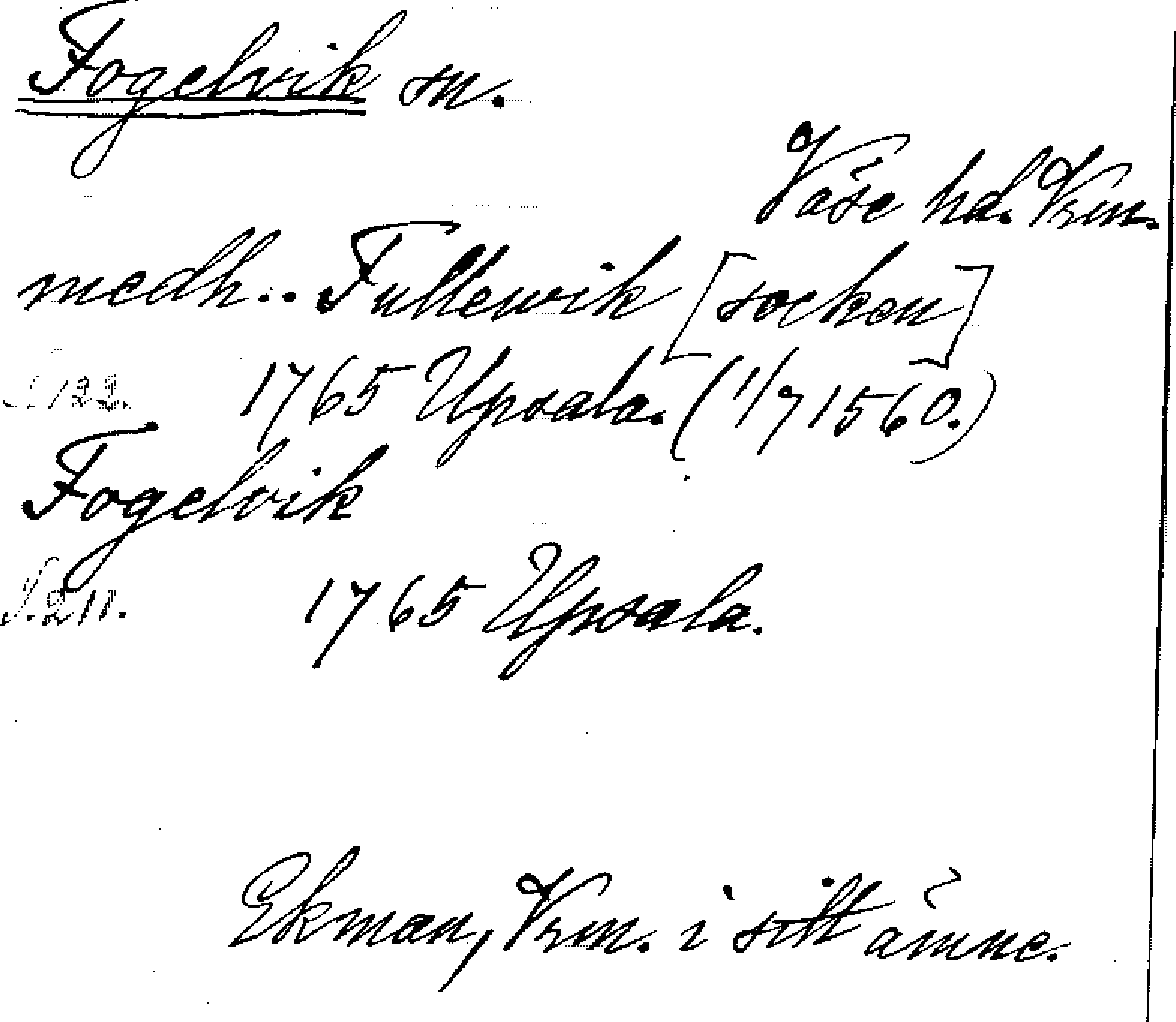 Fogelvik sn.
Väse hd. Vrm.
medh.. Fullewik [socken]
S. 122. 1765 Upsala. (1/7 1560.)
Fogelvik
S. 211. 1765 Upsala.
Ekman, Vrm. i sitt ämne.